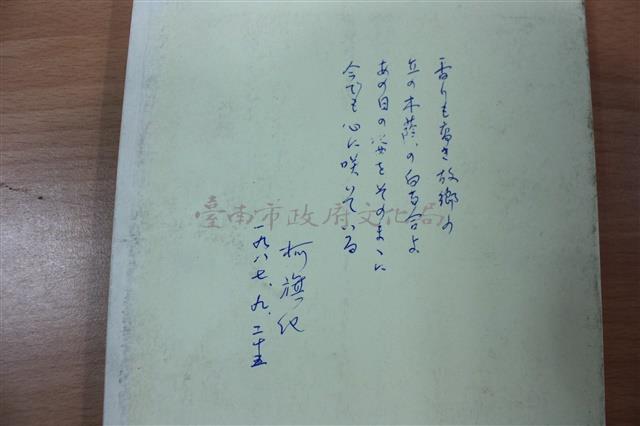 香りも高き故郷の
丘の木蔭の白百合よ
あの日の姿をそのまゝに
今でも心に咲いている
柯旗化
一九八七、九、二十五
臺南市政府文化局